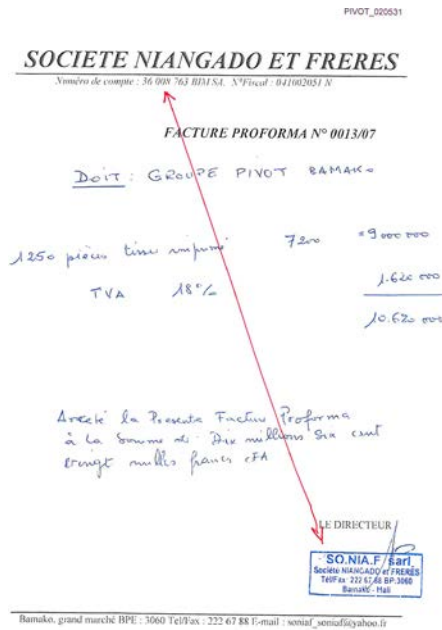 PIVOT_020531
SOCIETE NIANGADO ET FRERES
Numéro de compte : 36 008 763 BIM SA. N°Fiscal : 041002051 N
FACTURE PROFORMA N° 0013/07
DOIT : GROUPE PIVOT BAMAKO
1250 pièces tissu imprimé 7200 =9 000 000
TVA 18% 1.620 000
10.620 000
Arreté la Presente Facture Proforma
à La Somme de : Dix millions Six cent
vingt milles francs CFA
LE DIRECTEUR
SO.NIA.F sarl
Société NIANGADO et FRERES
Tél/Fax : 222 67 88 BP:3060
Bamako - Mali
Bamako, grand marché BPE : 3060 Tel/Fax : 222 67 88 E-mail : soniaf_soniaf@yahoo.fr